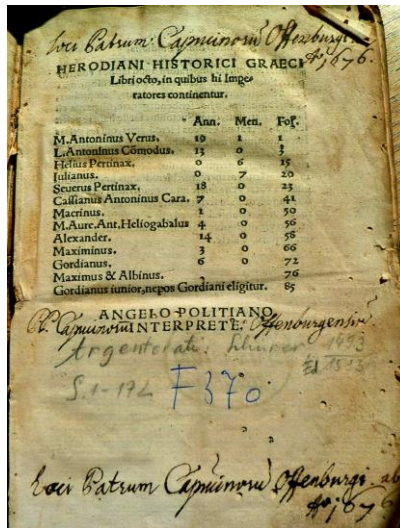 Loci Patrum Capucinorū Offenburgi.
Aō, 1676.
HERODIANI HISTORICI GRAECI
Libri octo, in quibus hi Impe-
ratores continentur.
Ann. Men. Fol.
M.Antoninus Verus. 19 1 1
L.Antoninus Cōmodus. 13 0 3
Helius Pertinax. 0 6 15
Iulianus. 0 7 20
Seuerus Pertinax. 18 0 23
Cassianus Antoninus Cara. 7 0 41
Macrinus. 1 0 50
M.Aure.Ant.Heliogabalus 4 0 56
Alexander. 14 0 58
Maximinus. 3 0 66
Gordianus. 6 0 72
Maximus & Albinus. 76
Gordianus iunior, nepos Gordiani eligitur. 85
ANGELO POLITIANO
INTERPRETE.
Capucinorū Offenburgensiū
Argentorati: Schürer 1493
Ed 1513
S.1-172 F370
Loci Patrum Capucinorū Offenburgi. ab
Aō, 1676